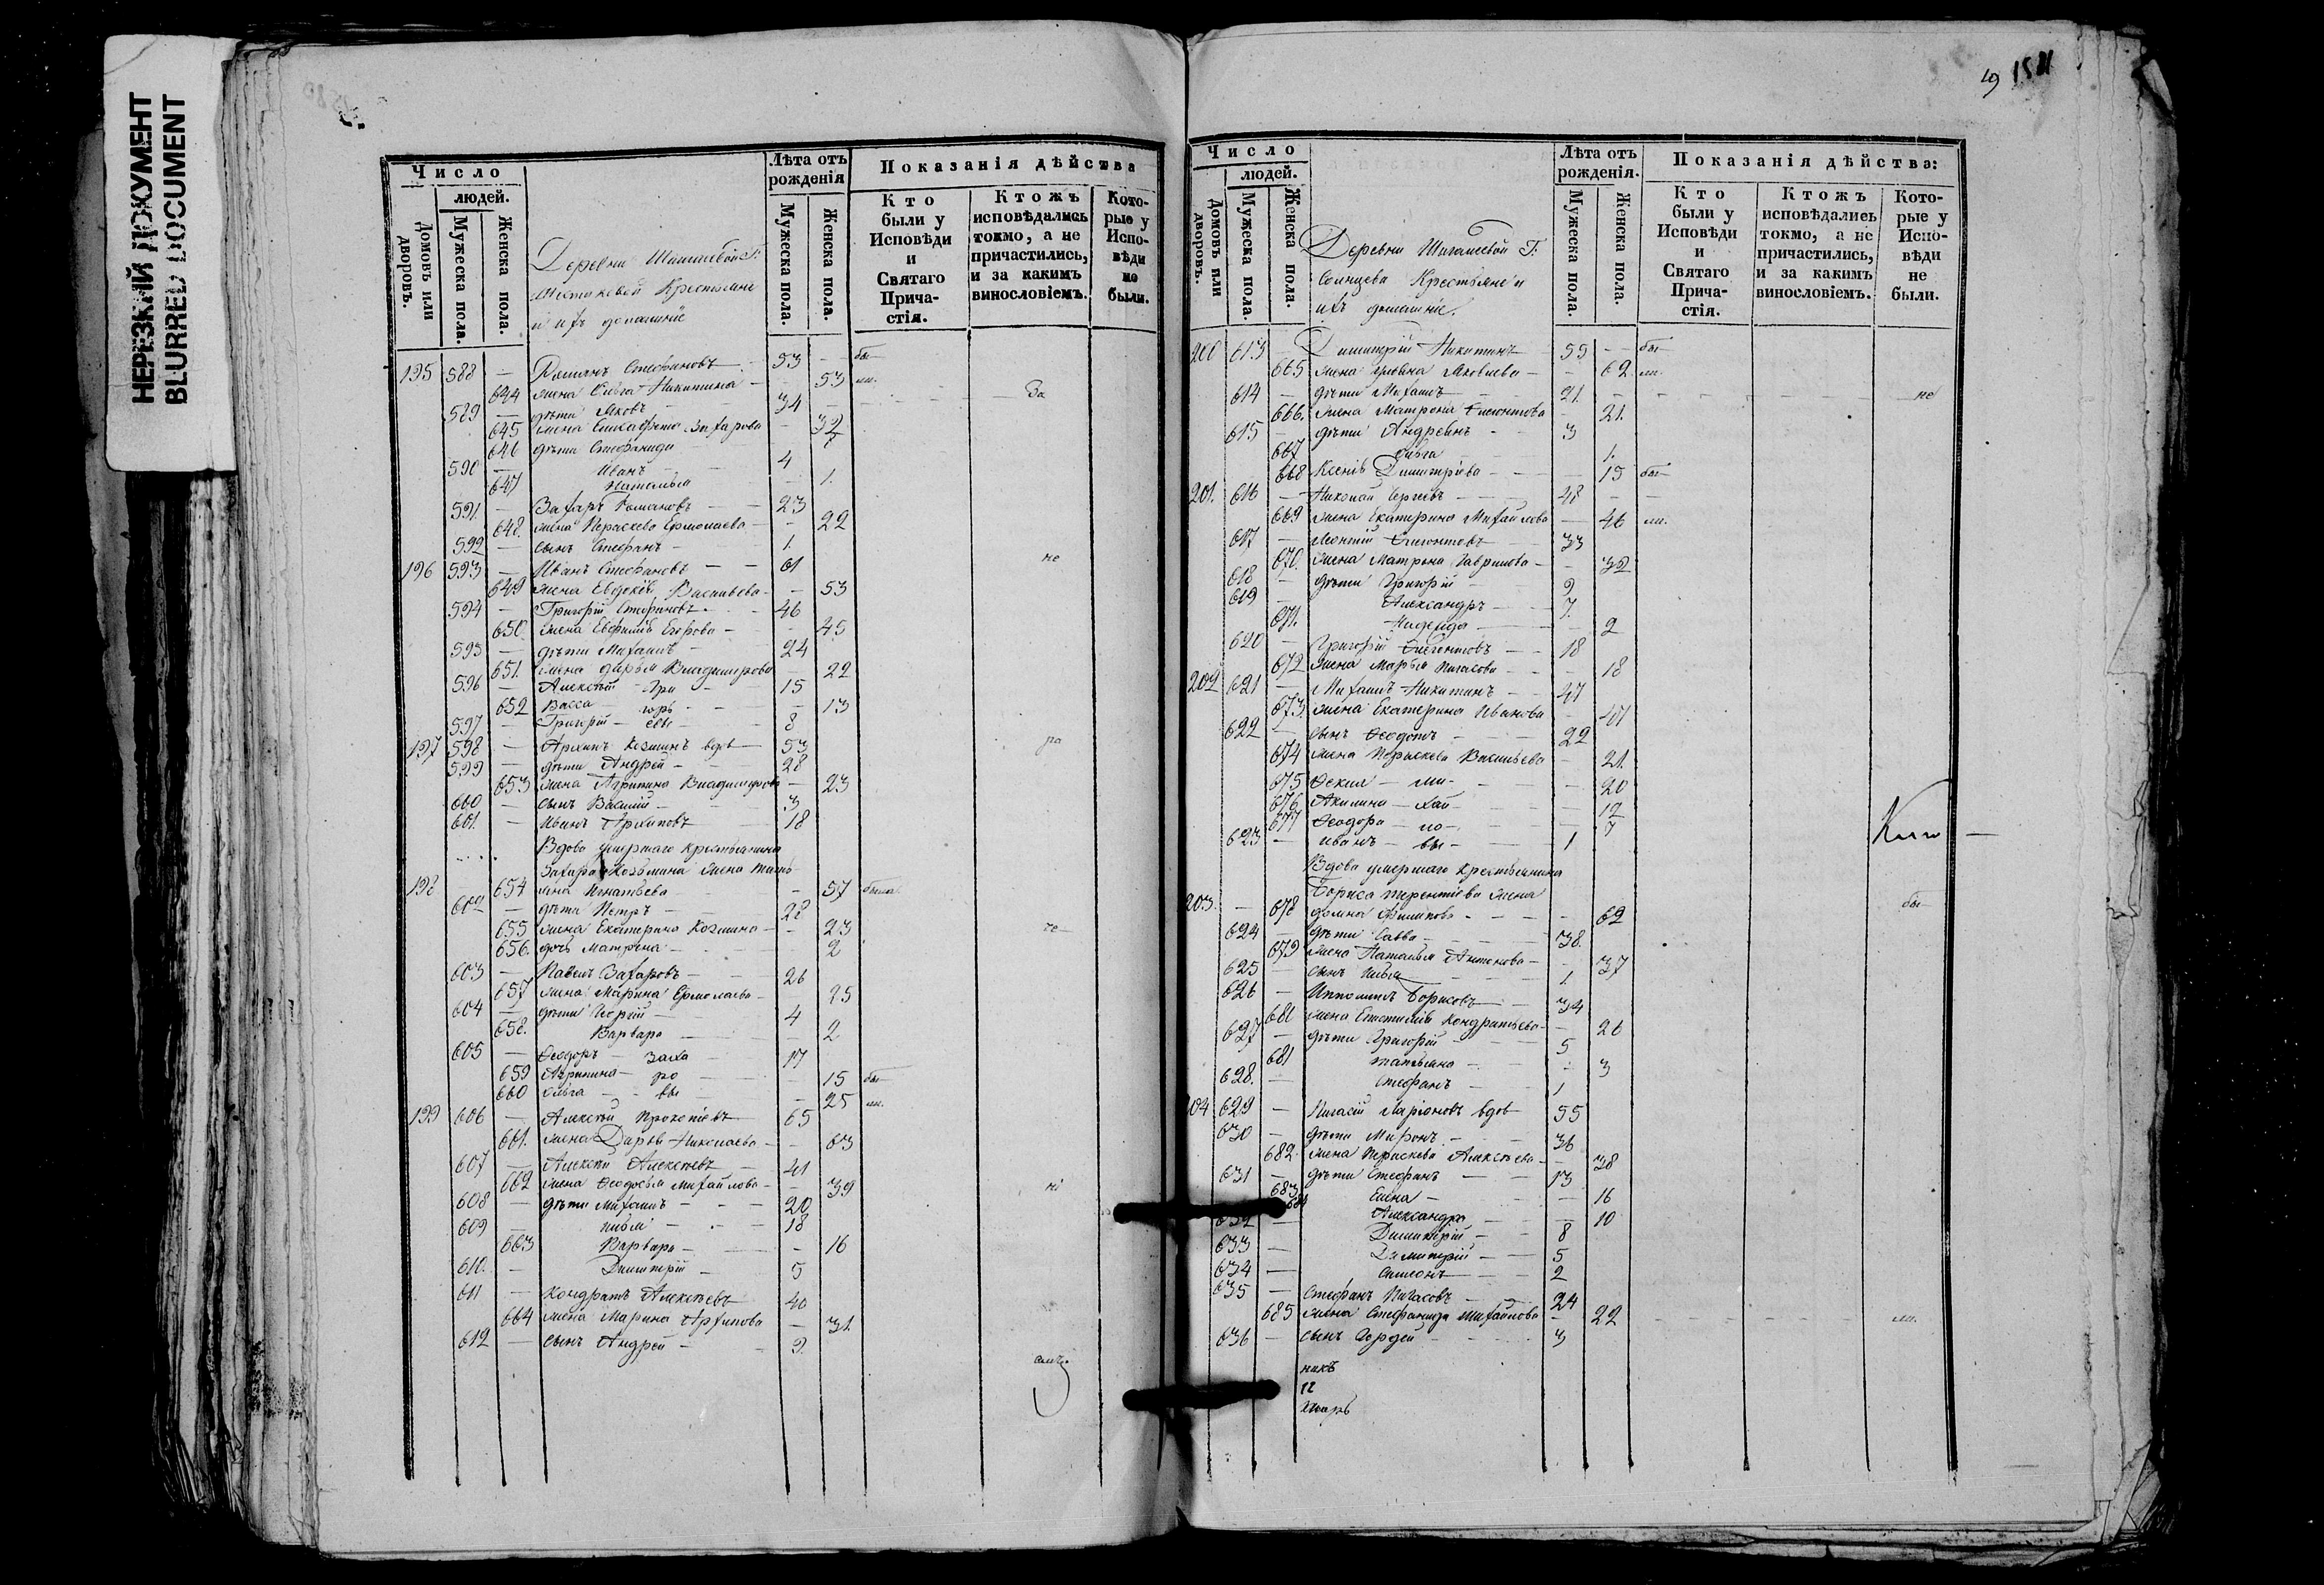 НЕРЕЗКИЙ ДОКУМЕНТ
BLURRED DOCUMENT
Число
людей.
Домовъ или дворовъ.
Мужеска пола.
Женска пола.
Деревни
Крестьяне
и ихъ домашніе
Лѣта отъ рожденія
Мужеска пола.
Женска пола.
Показанія дѣйства
Кто были у Исповѣди и Святаго Причастія.
Ктожъ исповѣдались токмо, а не причастились, и за какимъ винословіемъ.
Которые у Исповѣди не были.
195 588 — Романъ Стефановъ 53 — бы
644 жена Ольга Никитина — 53 ли.
589 — дѣти Яковъ 34 — За
645 жена Елисавета Захарова — 32
646 дѣти Стефанида 7
590 — Иванъ 4
647 Наталья — 1.
591. — Захаръ Романовъ 23
648. жена Параскева Ермолаева — 22
592 — сынъ Стефанъ — 1.
196 593 — Иванъ Стефановъ — 61 не
649 жена Евдокія Васильева — 53
594 — Григорій Стефановъ 46
650 жена Евфимія Егорова — 45
595 — дѣти Михаилъ — 24
651. жена Дарья Владимирова 22
596 — Алексѣй — Гри — 15
652 Васса — горь — 13
597 — Григорій — евы — 8
197 598 — Архипъ Козминъ вдов 53 ра
599 — дѣти Андрей — 28
653 жена Агрипина Владимирова — 23
600 — сынъ Василій — 3
601. — Иванъ Архиповъ 18
Вдова умершаго крестьянина
Захара Козьмина жена Тать
198 654 яна Игнатьева — 57 была
602 — дѣти Петръ — 28
655 жена Екатерина Козмина — 23 че
656. дочь Матрена — 2
603 — Павелъ Захаровъ — 26
657 жена Марина Ермолаева — 25
604 — дѣти Георгій — 4
658. Варвара — 2
605 — Ѳеодоръ — Заха — 17
659 Агрипина — ро — 15 бы
660 Ольга — вы — 25 ли.
199 606 — Алексѣй Прокопіевъ 65
661. жена Дарья Николаева — 63
607 — Алексѣй Алексѣевъ — 41
662 жена Ѳеодосья Михайлова — 39 ні
608 — дѣти Михаилъ — 20
609 — 18
663 Варвара — 16
610. — Димитрій — 5
611 — Кондратъ Алексѣевъ 40
664 жена Марина Архипова — 31.
612 — сынъ Андрей — 9.
емъ.
49 1581
Число
людей.
Домовъ или дворовъ.
Мужеска пола.
Женска пола.
Деревни Г:
Солнцева Крестьяне и
ихъ домашніе.
Лѣта отъ рожденія.
Мужеска пола.
Женска пола.
Показанія дѣйства:
Кто были у Исповѣди и Святаго Причастія.
Ктожъ исповѣдались токмо, а не причастились, и за какимъ винословіемъ.
Которые у Исповѣди не были.
200 613 Димитрій Никитинъ 59 — бы
665 жена Яковлева — 62 ли.
614 — дѣти Михаилъ 21. — не
666. жена Матрона 21.
615 — дѣти Андреянъ — 3
667 Ольга 1.
668 Ксенія Димитріева — 15 бы
201. 616 — Николай Сергеевъ — 48 —
669 жена Екатерина Михайлова — 46 ли.
617 — Леонтій 33
670. жена Матрона Гаврилова — 32
618 — дѣти Григорій 9
619 — Александръ — 7.
671. Надежда — 2
620 — Григорій — 18
672 жена Марья Пигасова — 18
202 621 — Михаилъ Никитинъ — 47
673 жена Екатерина Иванова 47
622 — сынъ Ѳеодотъ — 22
674 жена Параскева Васильева — 21.
675 Ѳекла — ми — 20
676 Акилина — хай — 12
677 Ѳеодора — ло — 7
623 — Иванъ — вы — 1
Вдова умершаго крестьянина
Бориса Терентіева жена
203. — 678 Домна Филипова — 62 бы
624 — дѣти Савва — 38.
679 жена Наталья Антонова — 37
625 — сынъ Илья 1.
626 — Ипполитъ Борисовъ — 34
680 жена Кондратьева — 26
627 — дѣти Григорій — 5
681 Татьяна — 3
628. — Стефанъ — 1
204 629 — Пигасій Ларіоновъ вдов 55
630 — дѣти Миронъ — 36
682. жена Параскева Алексѣева — 38
631 — дѣти Стефанъ — 13
683 Елена — 16
684 Александра — 10
632 — Димитрій — 8
633 — Димитрій — 5
634 — Симеонъ — 2
635 — Стефанъ Пигасовъ — 24
685 жена Стефанида Михайлова — 22 ли.
636 — сынъ Гордей — 3
никъ
12